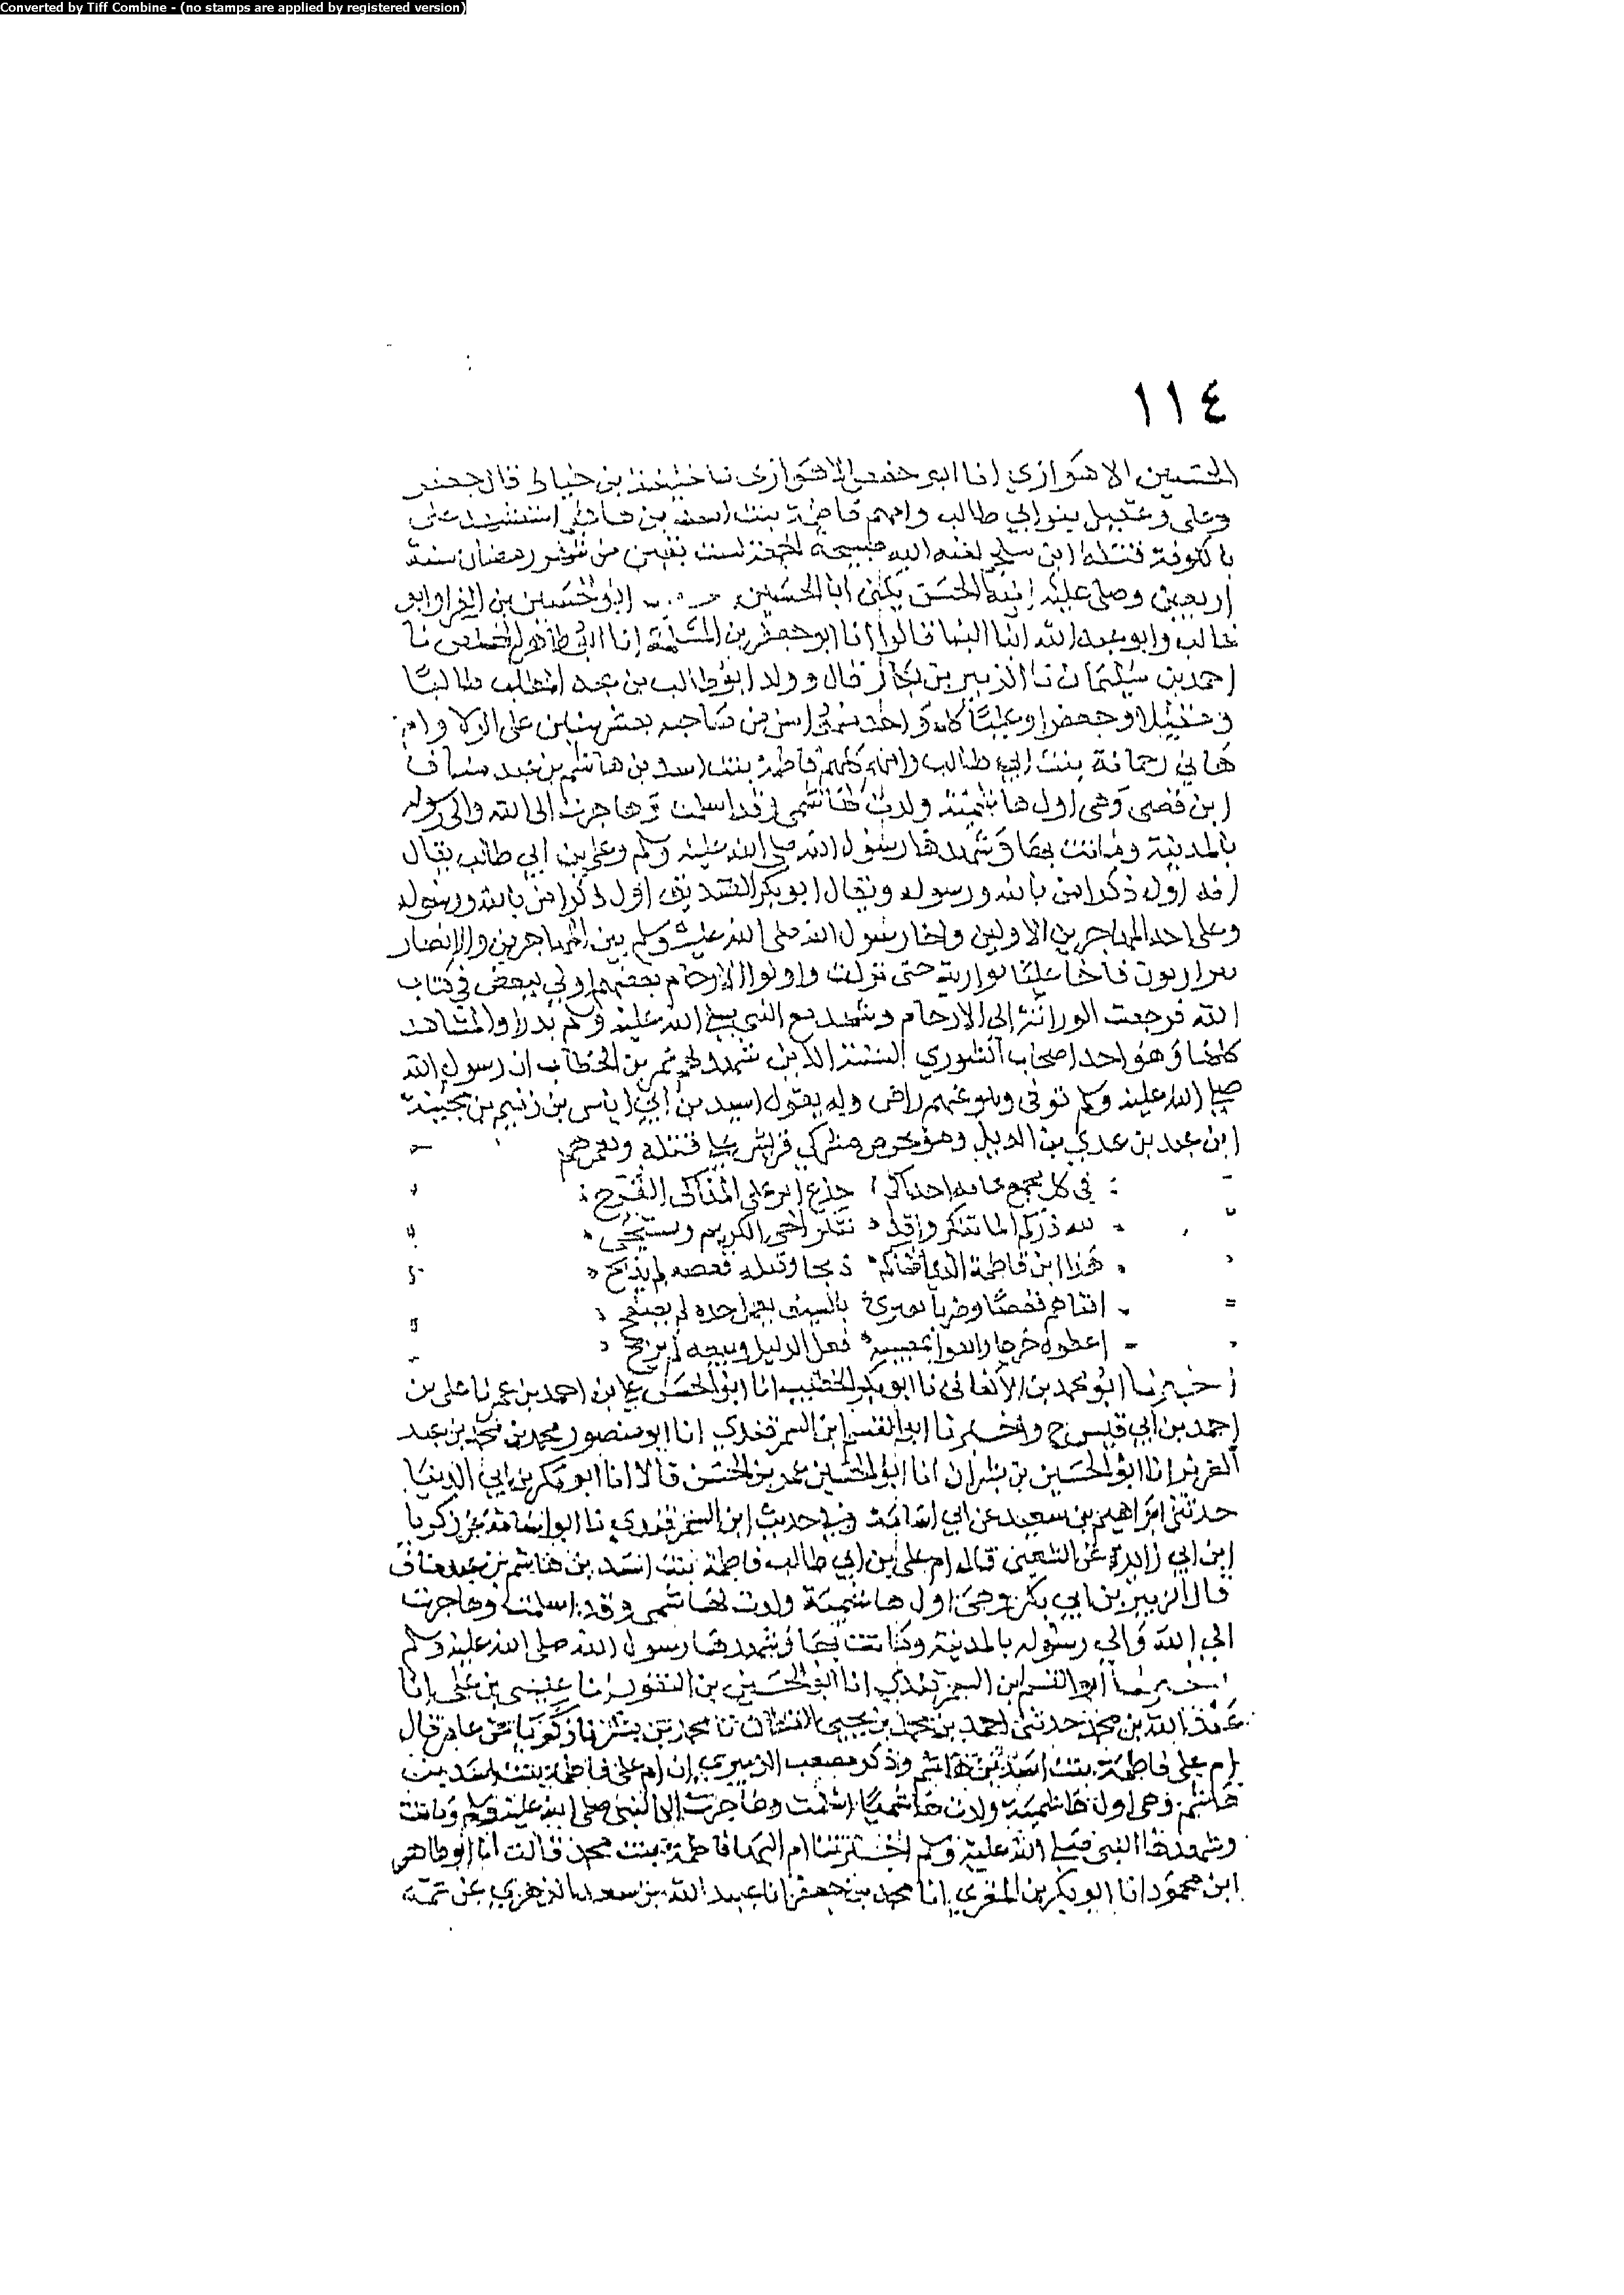 Converted by Tiff Combine - (no stamps are applied by registered version)
١١٤
الحسين الاهوازي انا ابو حفص الاهوازي نا خليفة بن خياط قال جعفر
وعلي وعقيل بنو ابي طالب وامهم فاطمة بنت اسد بن هاشم استشهد علي
بالكوفة قتله ابن ملجم لعنه الله صبيحة الجمعة لست بقين من شهر رمضان سنة
اربعين وصلى عليه ابنه الحسن يكنى ابا الحسين ابو الحسين بن الفرا وابو
غالب وابو عبد الله ابنا البنا قالوا انا ابو جعفر بن المسلمة انا ابو طاهر المخلص نا
احمد بن سليمان نا الزبير بن بكار قال وولد ابو طالب بن عبد المطلب طالبا
وعقيلا وجعفرا وعليا كل واحد منهم اسن من صاحبه بعشر سنين على الولا وام
هاني بنت ابي طالب وامهم كلهم فاطمة بنت اسد بن هاشم بن عبد مناف
ابن قصي وهي اول هاشمية ولدت لهاشمي وقد اسلمت وهاجرت الى الله والى رسوله
بالمدينة وماتت بها وشهدها رسول الله صلى الله عليه وسلم وعلي بن ابي طالب يقال
انه اول ذكر امن بالله ورسوله ويقال ابو بكر الصديق اول ذكر امن بالله ورسوله
وعلي احد المهاجرين الاولين واخا رسول الله صلى الله عليه وسلم بين المهاجرين والانصار
فاخا عليا نوارثه حتى نزلت واولوا الارحام بعضهم اولى ببعض في كتاب
الله فرجعت الوراثة الى الارحام وشهد مع النبي صلى الله عليه وسلم بدرا والمشاهد
كلها وهو احد اصحاب الشوري الستة الذين شهد لهم عمر بن الخطاب ان رسول الله
صلى الله عليه وسلم توفي وهو عنهم راض وله يقول اسيد بن ابي اياس بن زنيم بن
ابن عبد بن عدي بن الديل وهو يحرض مشركي قريش على قتله ويعيرهم
في كل مجمع غاية اخزاكم جذع ابر على المذاكي القرح
لله دركم الما تنكروا قد ننكر الحي الكريم ويستحي
هذا ابن فاطمة الذي افناكم ذبحا وقتله قعصه لم يذبح
افناهم قعصا وضربا بالسيف يعمل حده لم يصفح
اعطوه خرجا واتقوا فعل الذليل وبيعه لم تربح
اخبرنا ابو محمد بن الاكفاني نا ابو بكر الخطيب انا ابو الحسن علي بن احمد بن عمر نا علي بن
احمد بن ابي قيس ح واخبرنا ابو القسم ابن السمرقندي انا ابو منصور محمد بن محمد بن عبد
العزيز انا ابو الحسين بن بشران انا ابو الحسين عمر بن الحسن قالا انا ابو بكر بن ابي الدنيا
حدثني ابراهيم بن سعيد عن ابي اسامة وفي حديث ابن السمرقندي نا ابو اسامة عن زكريا
ابن ابي زايدة عن الشعبي قال ام علي بن ابي طالب فاطمة بنت اسد بن هاشم بن عبد مناف
قال الزبير بن ابي بكر وهي اول هاشمية ولدت لهاشمي وقد اسلمت وهاجرت
الي الله والي رسوله بالمدينة وماتت بها وشهدها رسول الله صلى الله عليه وسلم
اخبرنا ابو القسم ابن السمرقندي انا ابو الحسين بن النقور انا عيسى بن علي انا
عبد الله بن محمد حدثني احمد بن محمد بن يحيى القطان نا محمد بن بشر نا زكريا عن عامر قال
ام علي فاطمة بنت اسد بن هاشم وذكر مصعب الزبيري ان ام علي فاطمة بنت اسد بن
هاشم وهي اول هاشمية ولدت هاشميا اسلمت وهاجرت الى النبي صلى الله عليه وسلم وماتت
وشهدها النبي صلى الله عليه وسلم اخبرتنا ام البها فاطمة بنت محمد قالت انا ابو طاهر
ابن محمود انا ابو بكر بن المقري انا محمد بن جعفر انا عبيد الله بن سعد الزهري عن عمه